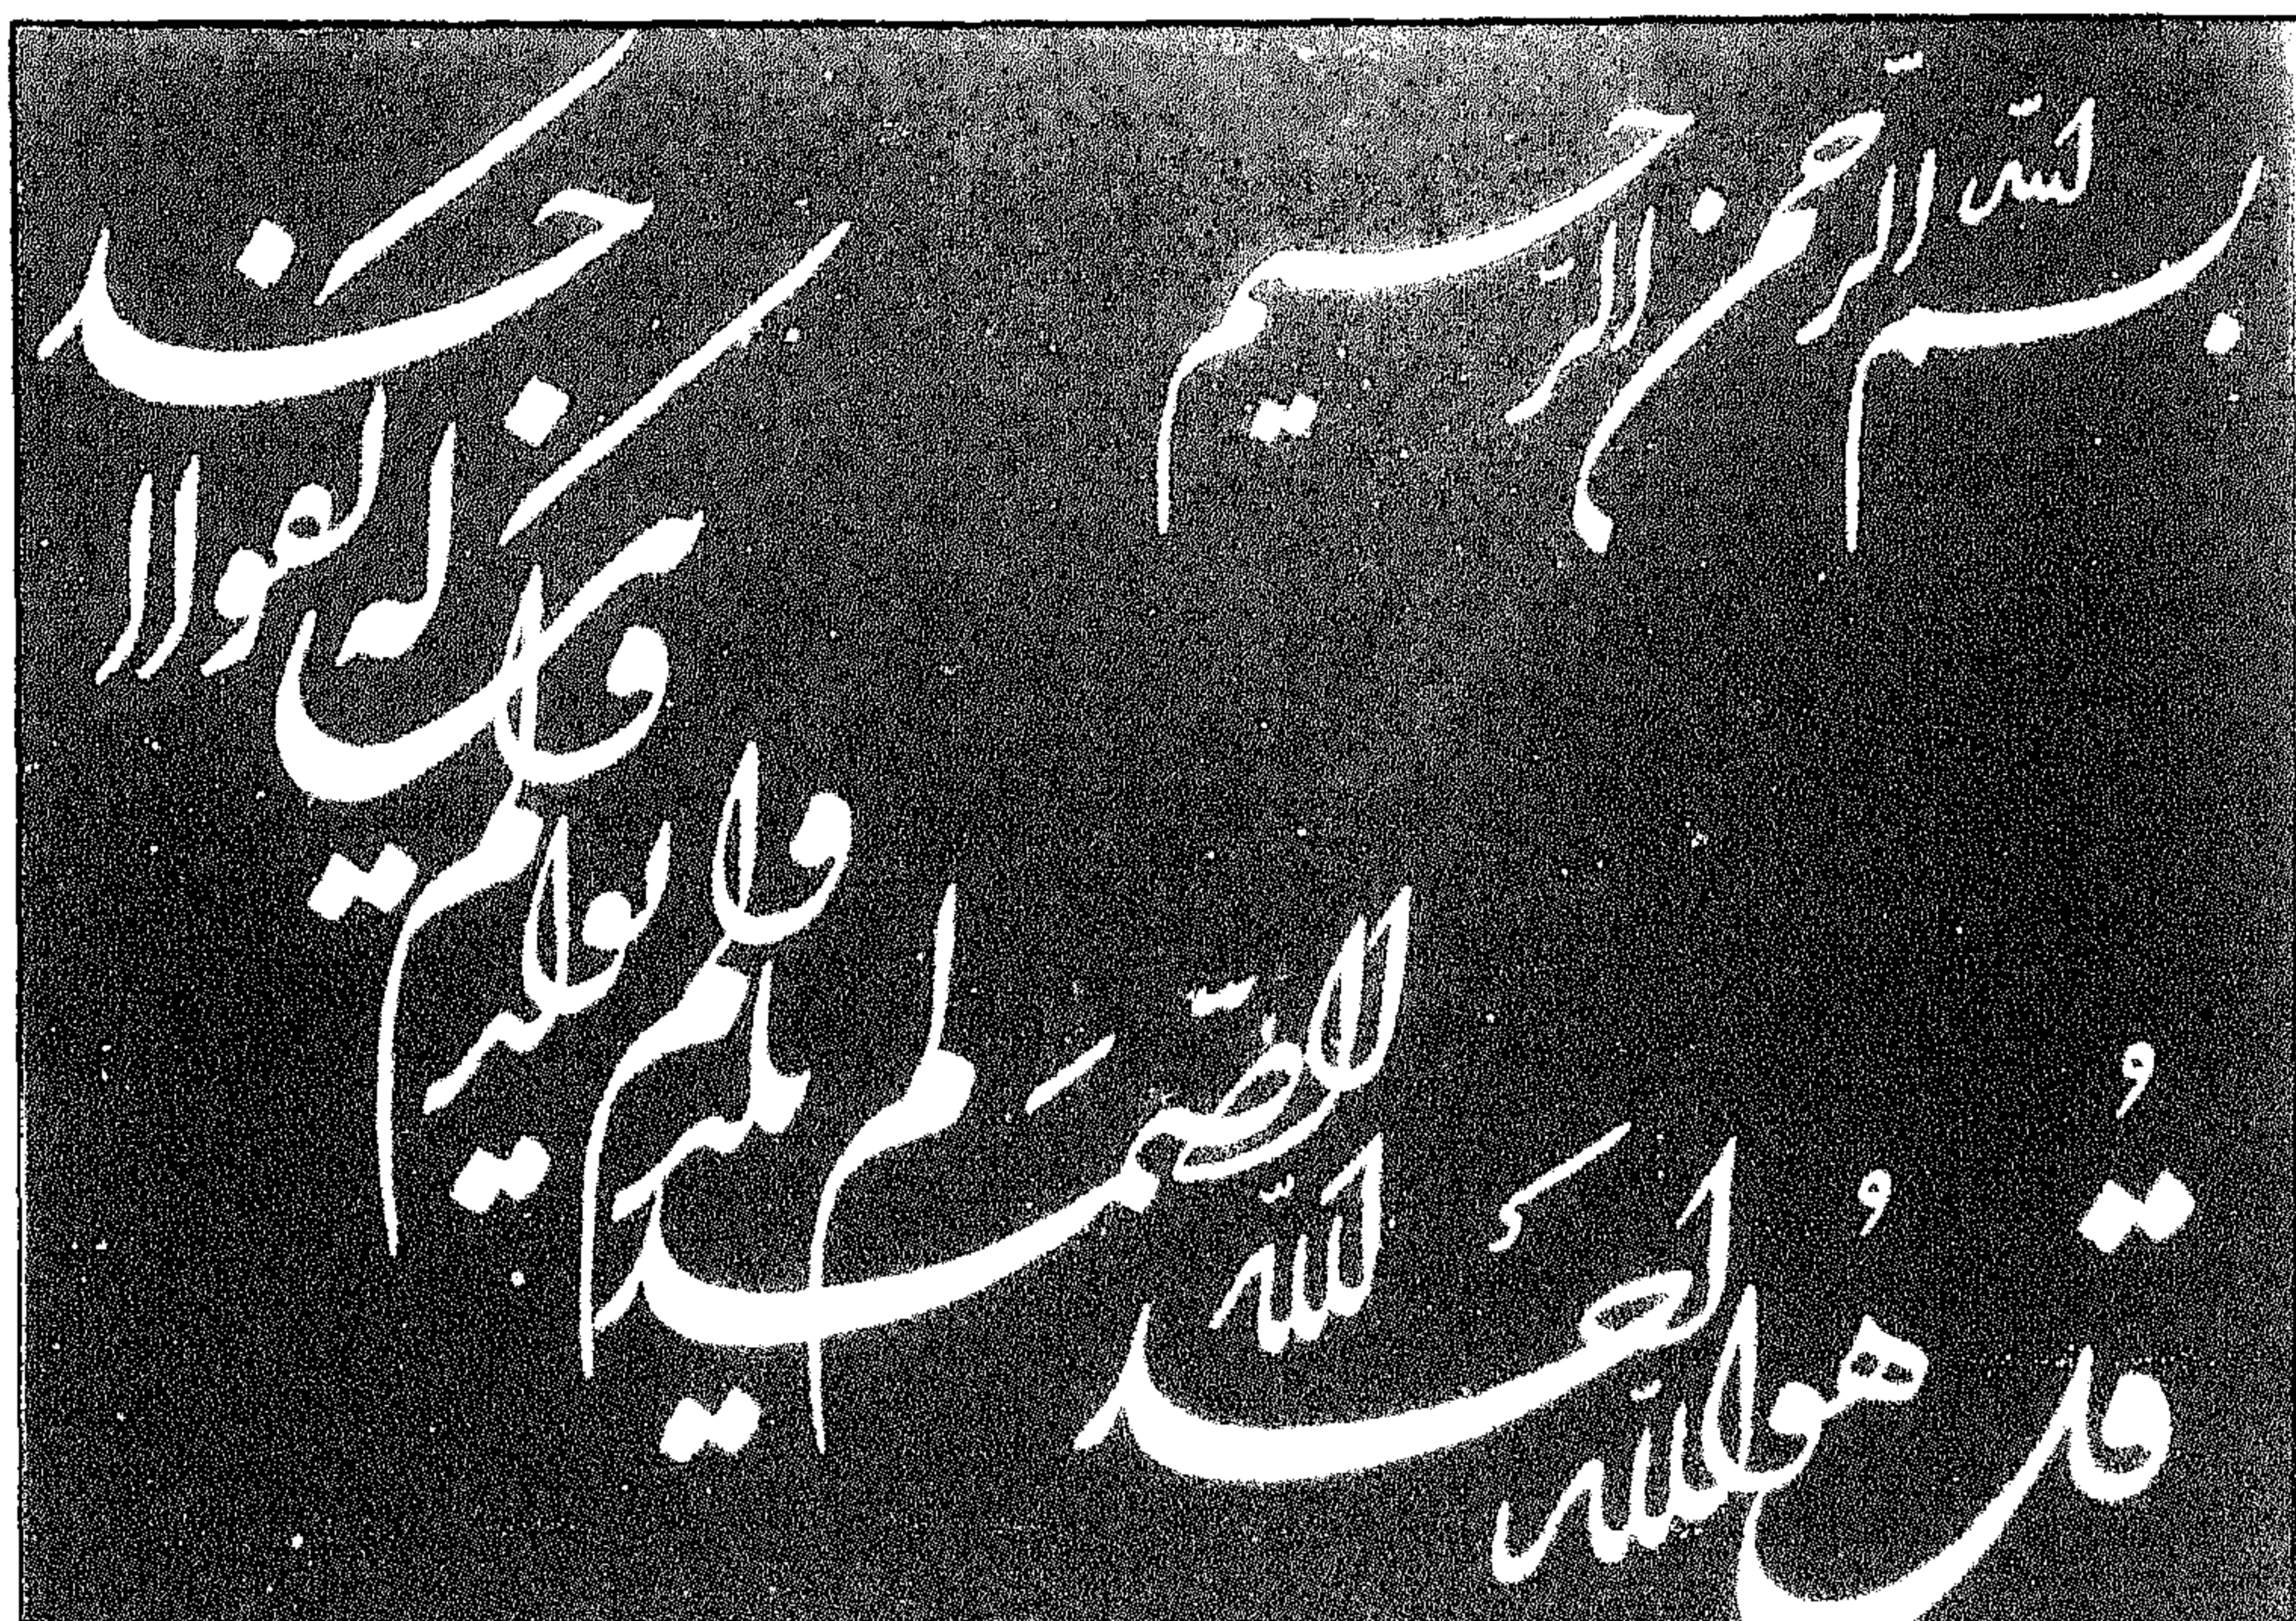 بسم الله الرّحمن الرّحیم
قُل هُو اللّه اَحد
اللّه الصّمد
لم یلد
و لم یولد
و لم یکن له کفوا احد